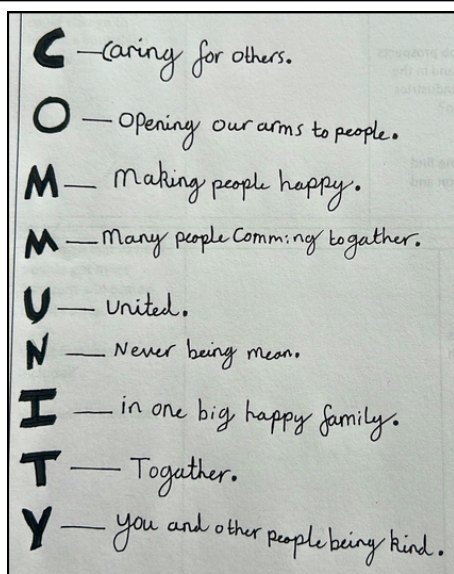 C — Caring for others.
O — Opening our arms to people.
M — Making people happy.
M — Many people Comming togather.
U — United.
N — Never being mean.
I — in one big happy family.
T — Togather.
Y — You and other people being kind.